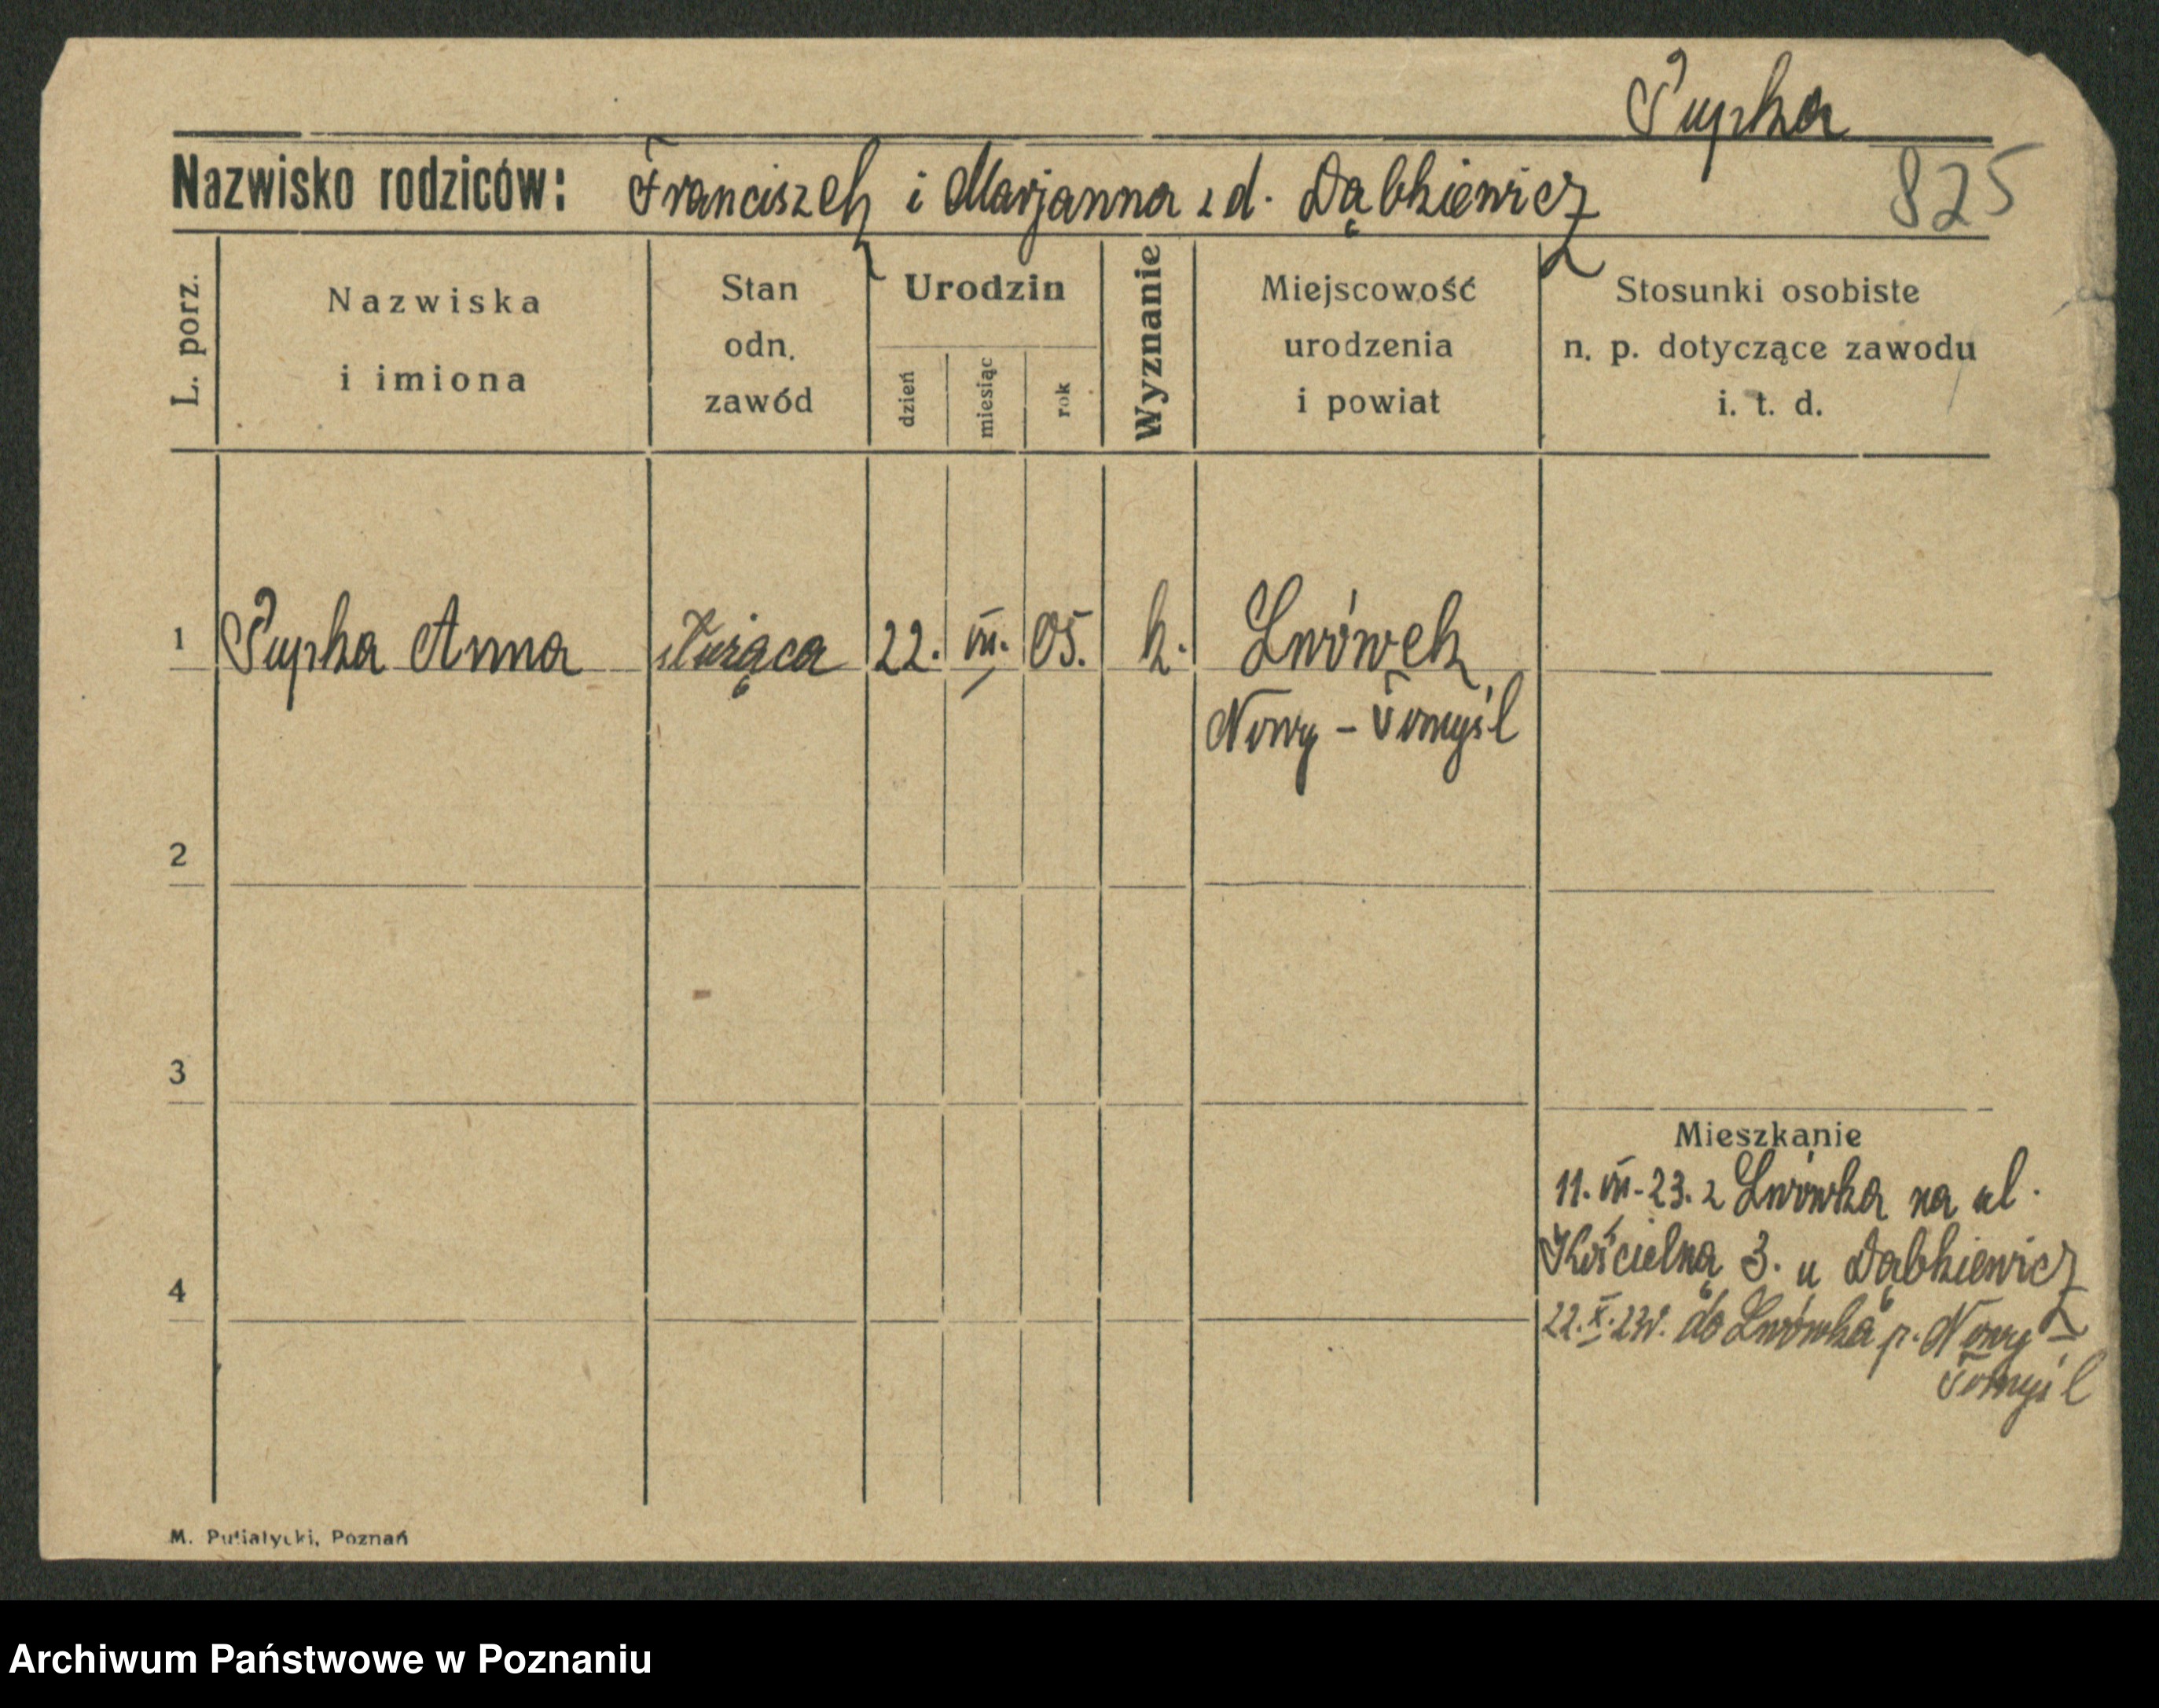 Pupka
Nazwisko rodziców: Franciszek i Marjanna z d. Dąbkiewicz
825
L. porz.
Nazwiska
i imiona
Stan
odn.
zawód
Urodzin
dzień
miesiąc
rok
Wyznanie
Miejscowość
urodzenia
i powiat
Stosunki osobiste
n. p. dotyczące zawodu
i. t. d.
1 Pupka Anna służąca 22. VII. 05. k. Lwówek
Nowy-Tomyśl
2
3
Mieszkanie
11. VII. 23. z Lwówka na ul.
Kościelną 3. u Dąbkiewicz
4
22. X. 23r. do Lwówka p. Nowy-
Tomyśl
M. Putiatycki, Poznań
Archiwum Państwowe w Poznaniu